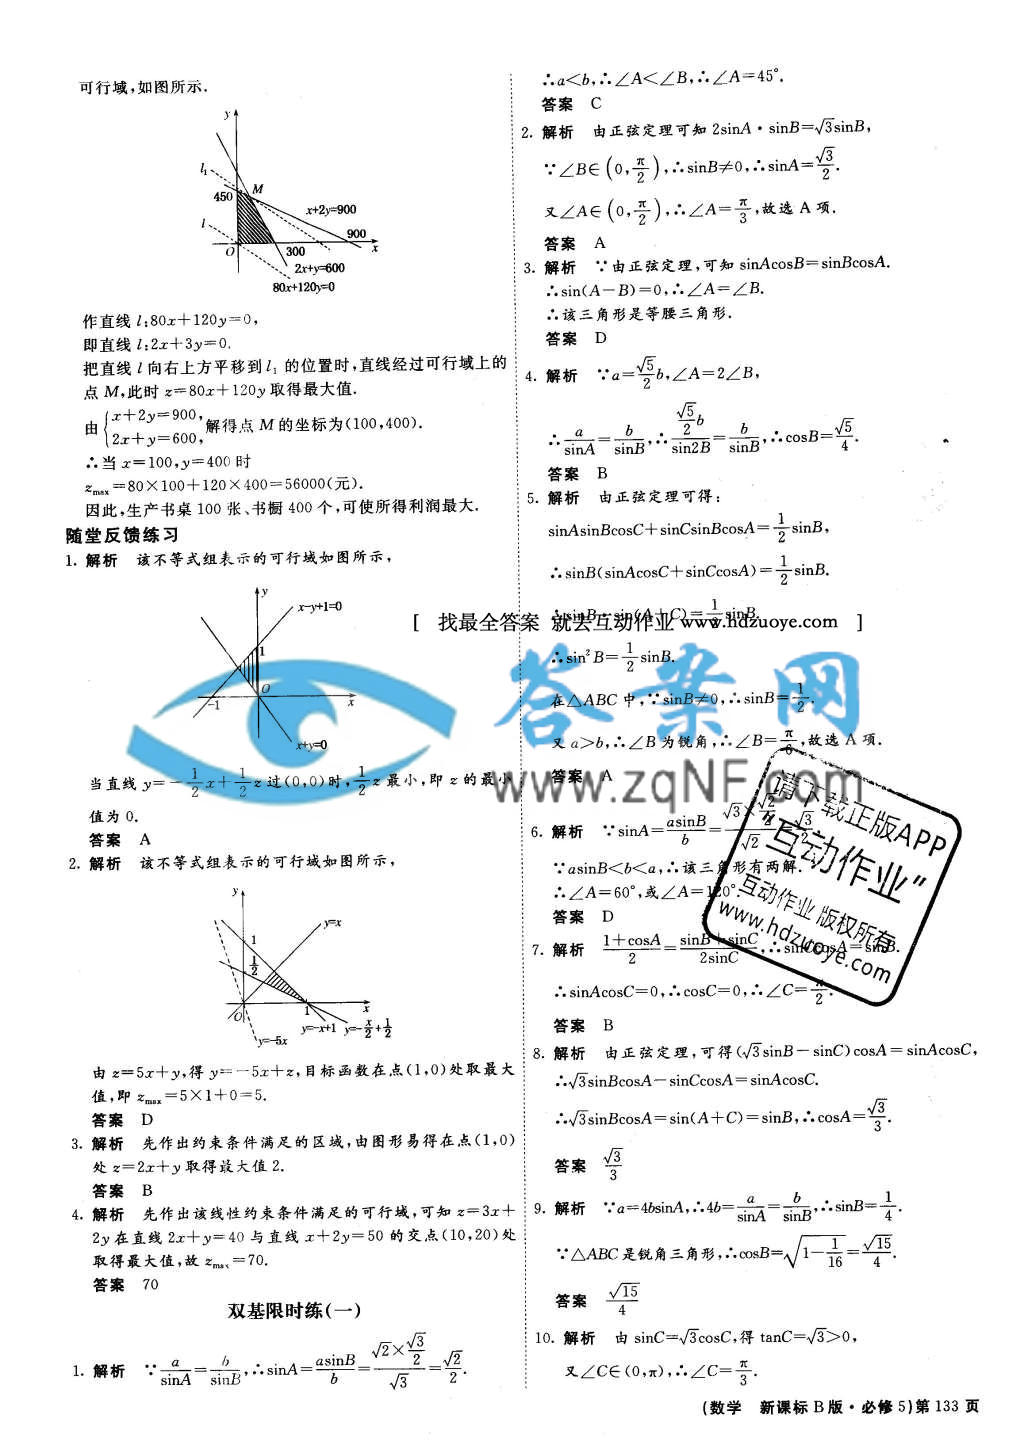 可行域,如图所示.
y
l₁
450
M
x+2y=900
l
900
O
300
x
2x+y=600
80x+120y=0
作直线 l:80x+120y=0,
即直线 l:2x+3y=0.
把直线 l 向右上方平移到 l₁ 的位置时,直线经过可行域上的
点 M,此时 z=80x+120y 取得最大值.
由{x+2y=900, 2x+y=600,解得点 M 的坐标为(100,400).
∴当 x=100,y=400 时
z_max=80×100+120×400=56000(元).
因此,生产书桌 100 张、书橱 400 个,可使所得利润最大.
随堂反馈练习
1. 解析 该不等式组表示的可行域如图所示,
y
x-y+1=0
1
-1
O
x
x+y=0
当直线 y=-1/2x+1/2z 过(0,0)时,1/2z 最小,即 z 的最小
值为 0.
答案 A
2. 解析 该不等式组表示的可行域如图所示,
y
y=x
1
1/2
O
1
x
y=-x+1 y=-x/2+1/2
y=-5x
由 z=5x+y,得 y=-5x+z,目标函数在点(1,0)处取最大
值,即 z_max=5×1+0=5.
答案 D
3. 解析 先作出约束条件满足的区域,由图形易得在点(1,0)
处 z=2x+y 取得最大值 2.
答案 B
4. 解析 先作出该线性约束条件满足的可行域,可知 z=3x+
2y 在直线 2x+y=40 与直线 x+2y=50 的交点(10,20)处
取得最大值,故 z_max=70.
答案 70
双基限时练(一)
1. 解析 ∵a/sinA=b/sinB,∴sinA=asinB/b=(√2×√3/2)/√3=√2/2.
∴a<b,∴∠A<∠B,∴∠A=45°.
答案 C
2. 解析 由正弦定理可知 2sinA·sinB=√3sinB,
∵∠B∈(0,π/2),∴sinB≠0,∴sinA=√3/2.
又∠A∈(0,π/2),∴∠A=π/3,故选 A 项.
答案 A
3. 解析 ∵由正弦定理,可知 sinAcosB=sinBcosA.
∴sin(A-B)=0,∴∠A=∠B.
∴该三角形是等腰三角形.
答案 D
4. 解析 ∵a=√5/2b,∠A=2∠B,
∴a/sinA=b/sinB,∴(√5/2b)/sin2B=b/sinB,∴cosB=√5/4.
答案 B
5. 解析 由正弦定理可得:
sinAsinBcosC+sinCsinBcosA=1/2sinB,
∴sinB(sinAcosC+sinCcosA)=1/2sinB.
∴sinB·sin(A+C)=1/2sinB.
[ 找最全答案 就去互动作业 www.hdzuoye.com ]
∴sin²B=1/2sinB.
在△ABC 中,∵sinB≠0,∴sinB=1/2.
又 a>b,∴∠B 为锐角,∴∠B=π/6,故选 A 项.
答案 A
答案网
www.zqNF.com
6. 解析 ∵sinA=asinB/b=(√3×√2/2)/√2=√3/2.
∵asinB<b<a,∴该三角形有两解.
∴∠A=60°,或∠A=120°.
答案 D
请下载正版APP
"互动作业"
互动作业 版权所有
www.hdzuoye.com
7. 解析 (1+cosA)/2=(sinB+sinC)/2sinC,∴sinCcosA=sinB.
∴sinAcosC=0,∴cosC=0,∴∠C=π/2.
答案 B
8. 解析 由正弦定理,可得(√3sinB-sinC)cosA=sinAcosC,
∴√3sinBcosA-sinCcosA=sinAcosC.
∴√3sinBcosA=sin(A+C)=sinB,∴cosA=√3/3.
答案 √3/3
9. 解析 ∵a=4bsinA,∴4b=a/sinA=b/sinB,∴sinB=1/4.
∵△ABC 是锐角三角形,∴cosB=√(1-1/16)=√15/4.
答案 √15/4
10. 解析 由 sinC=√3cosC,得 tanC=√3>0,
又∠C∈(0,π),∴∠C=π/3.
(数学 新课标 B 版·必修 5)第 133 页